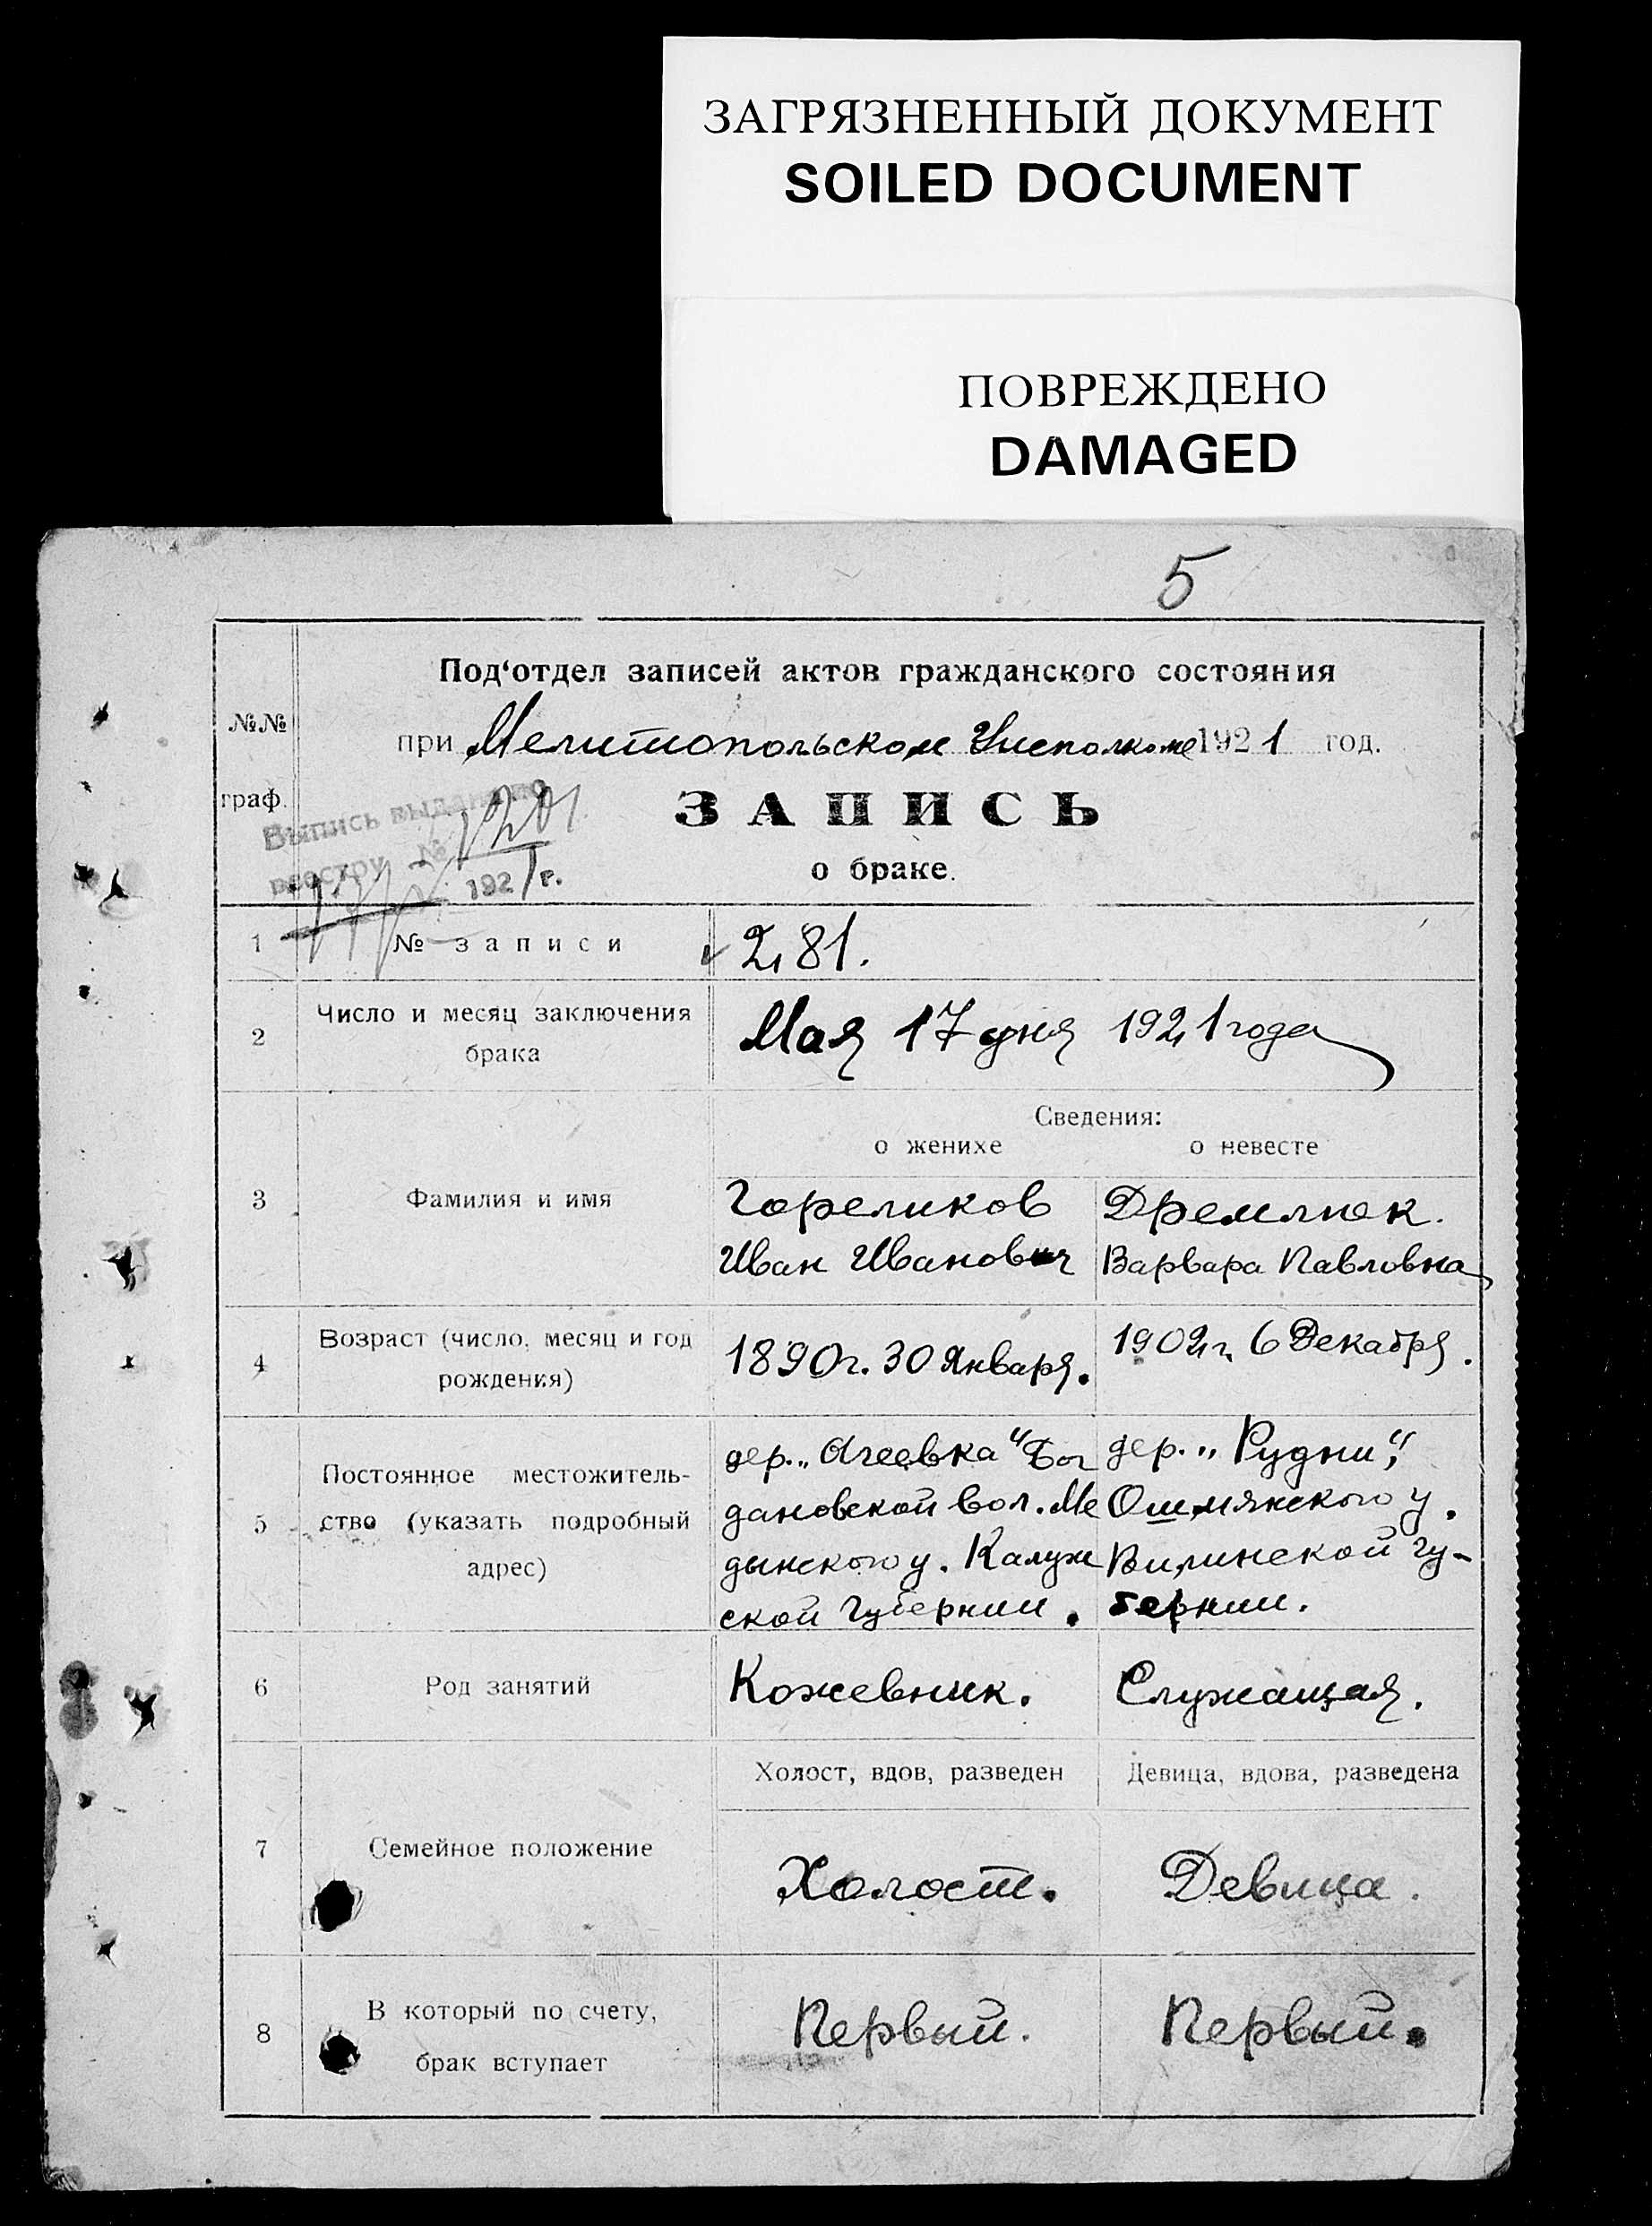 ЗАГРЯЗНЕННЫЙ ДОКУМЕНТ
SOILED DOCUMENT
ПОВРЕЖДЕНО
DAMAGED
5
Под‘отдел записей актов гражданского состояния
№№
при Мелитопольском Исполкоме 1921 год.
граф.
Выпись выдана по
реестру №
1921 г.
ЗАПИСЬ
о браке.
1 № записи 281.
2 Число и месяц заключения
брака
Мая 17 дня 1921 года
Сведения:
о женихе о невесте
3 Фамилия и имя
Гореликов
Иван Иванович
Дремлюк.
Варвара Павловна
4 Возраст (число, месяц и год
рождения)
1890 г. 30 Января.
1902 г. 6 Декабря.
5 Постоянное местожитель-
ство (указать подробный
адрес)
дер. „Агеевка“ Бог
дановской вол. Ме
дынского у. Калуж
ской Губернии.
дер. „Рудни“,
Ошмянского у.
Вилинской гу-
бернии.
6 Род занятий
Кожевник.
Служащая.
Холост, вдов, разведен
Девица, вдова, разведена
7 Семейное положение
Холост.
Девица.
8 В который по счету,
брак вступает
Первый.
Первый.